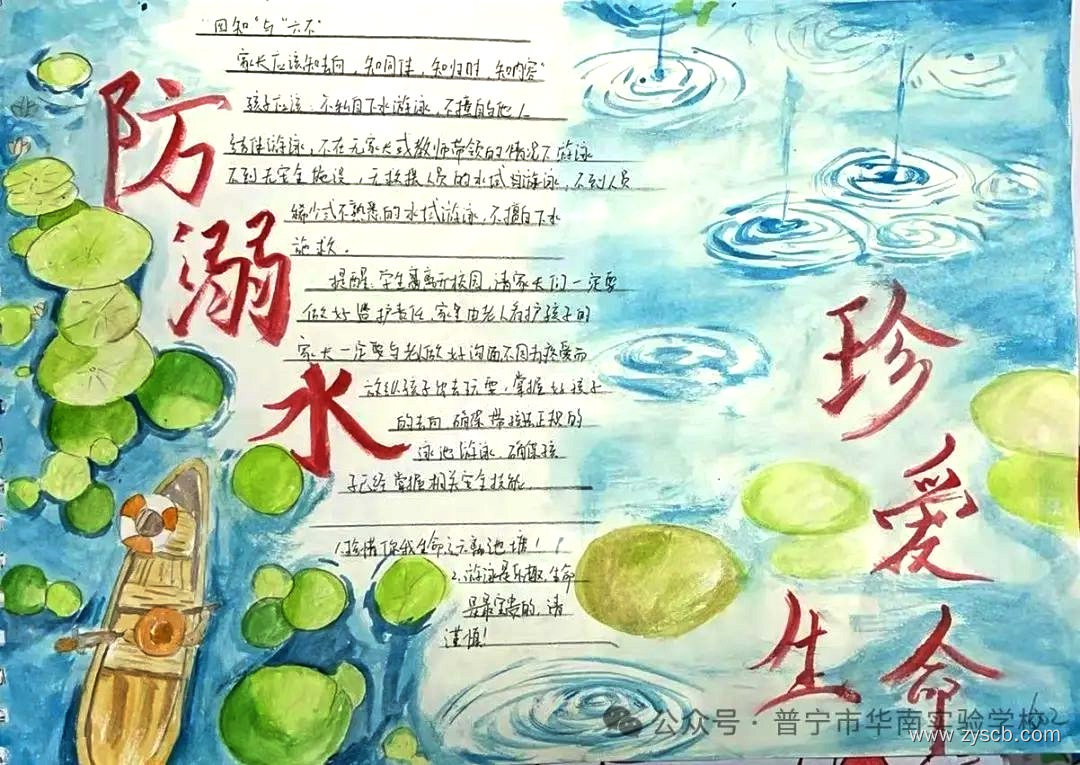 防溺水
珍爱生命
"四知"与"六不"
家长应该知去向，知同伴，知归时，知内容
孩子应该：不私自下水游泳，不擅自与他人
结伴游泳，不在无家长或教师带领的情况下游泳
不到无安全设施，无救援人员的水域游泳，不到人员
稀少或不熟悉的水域游泳，不擅自下水
施救。
提醒：学生离开校园，请家长们一定要
做好监护责任，家里由老人看护孩子的
家长一定要与老人做好沟通不因为疼爱而
放纵孩子出去玩耍，掌握好孩子
的去向 确保带孩子正规的
泳池游泳，确保孩
子已经掌握相关安全技能。
1.珍惜你我生命 池塘！
2.游泳是乐趣，生命
是最宝贵的，请
谨慎！
公众号·普宁市华南实验学校
www.zyscb.com